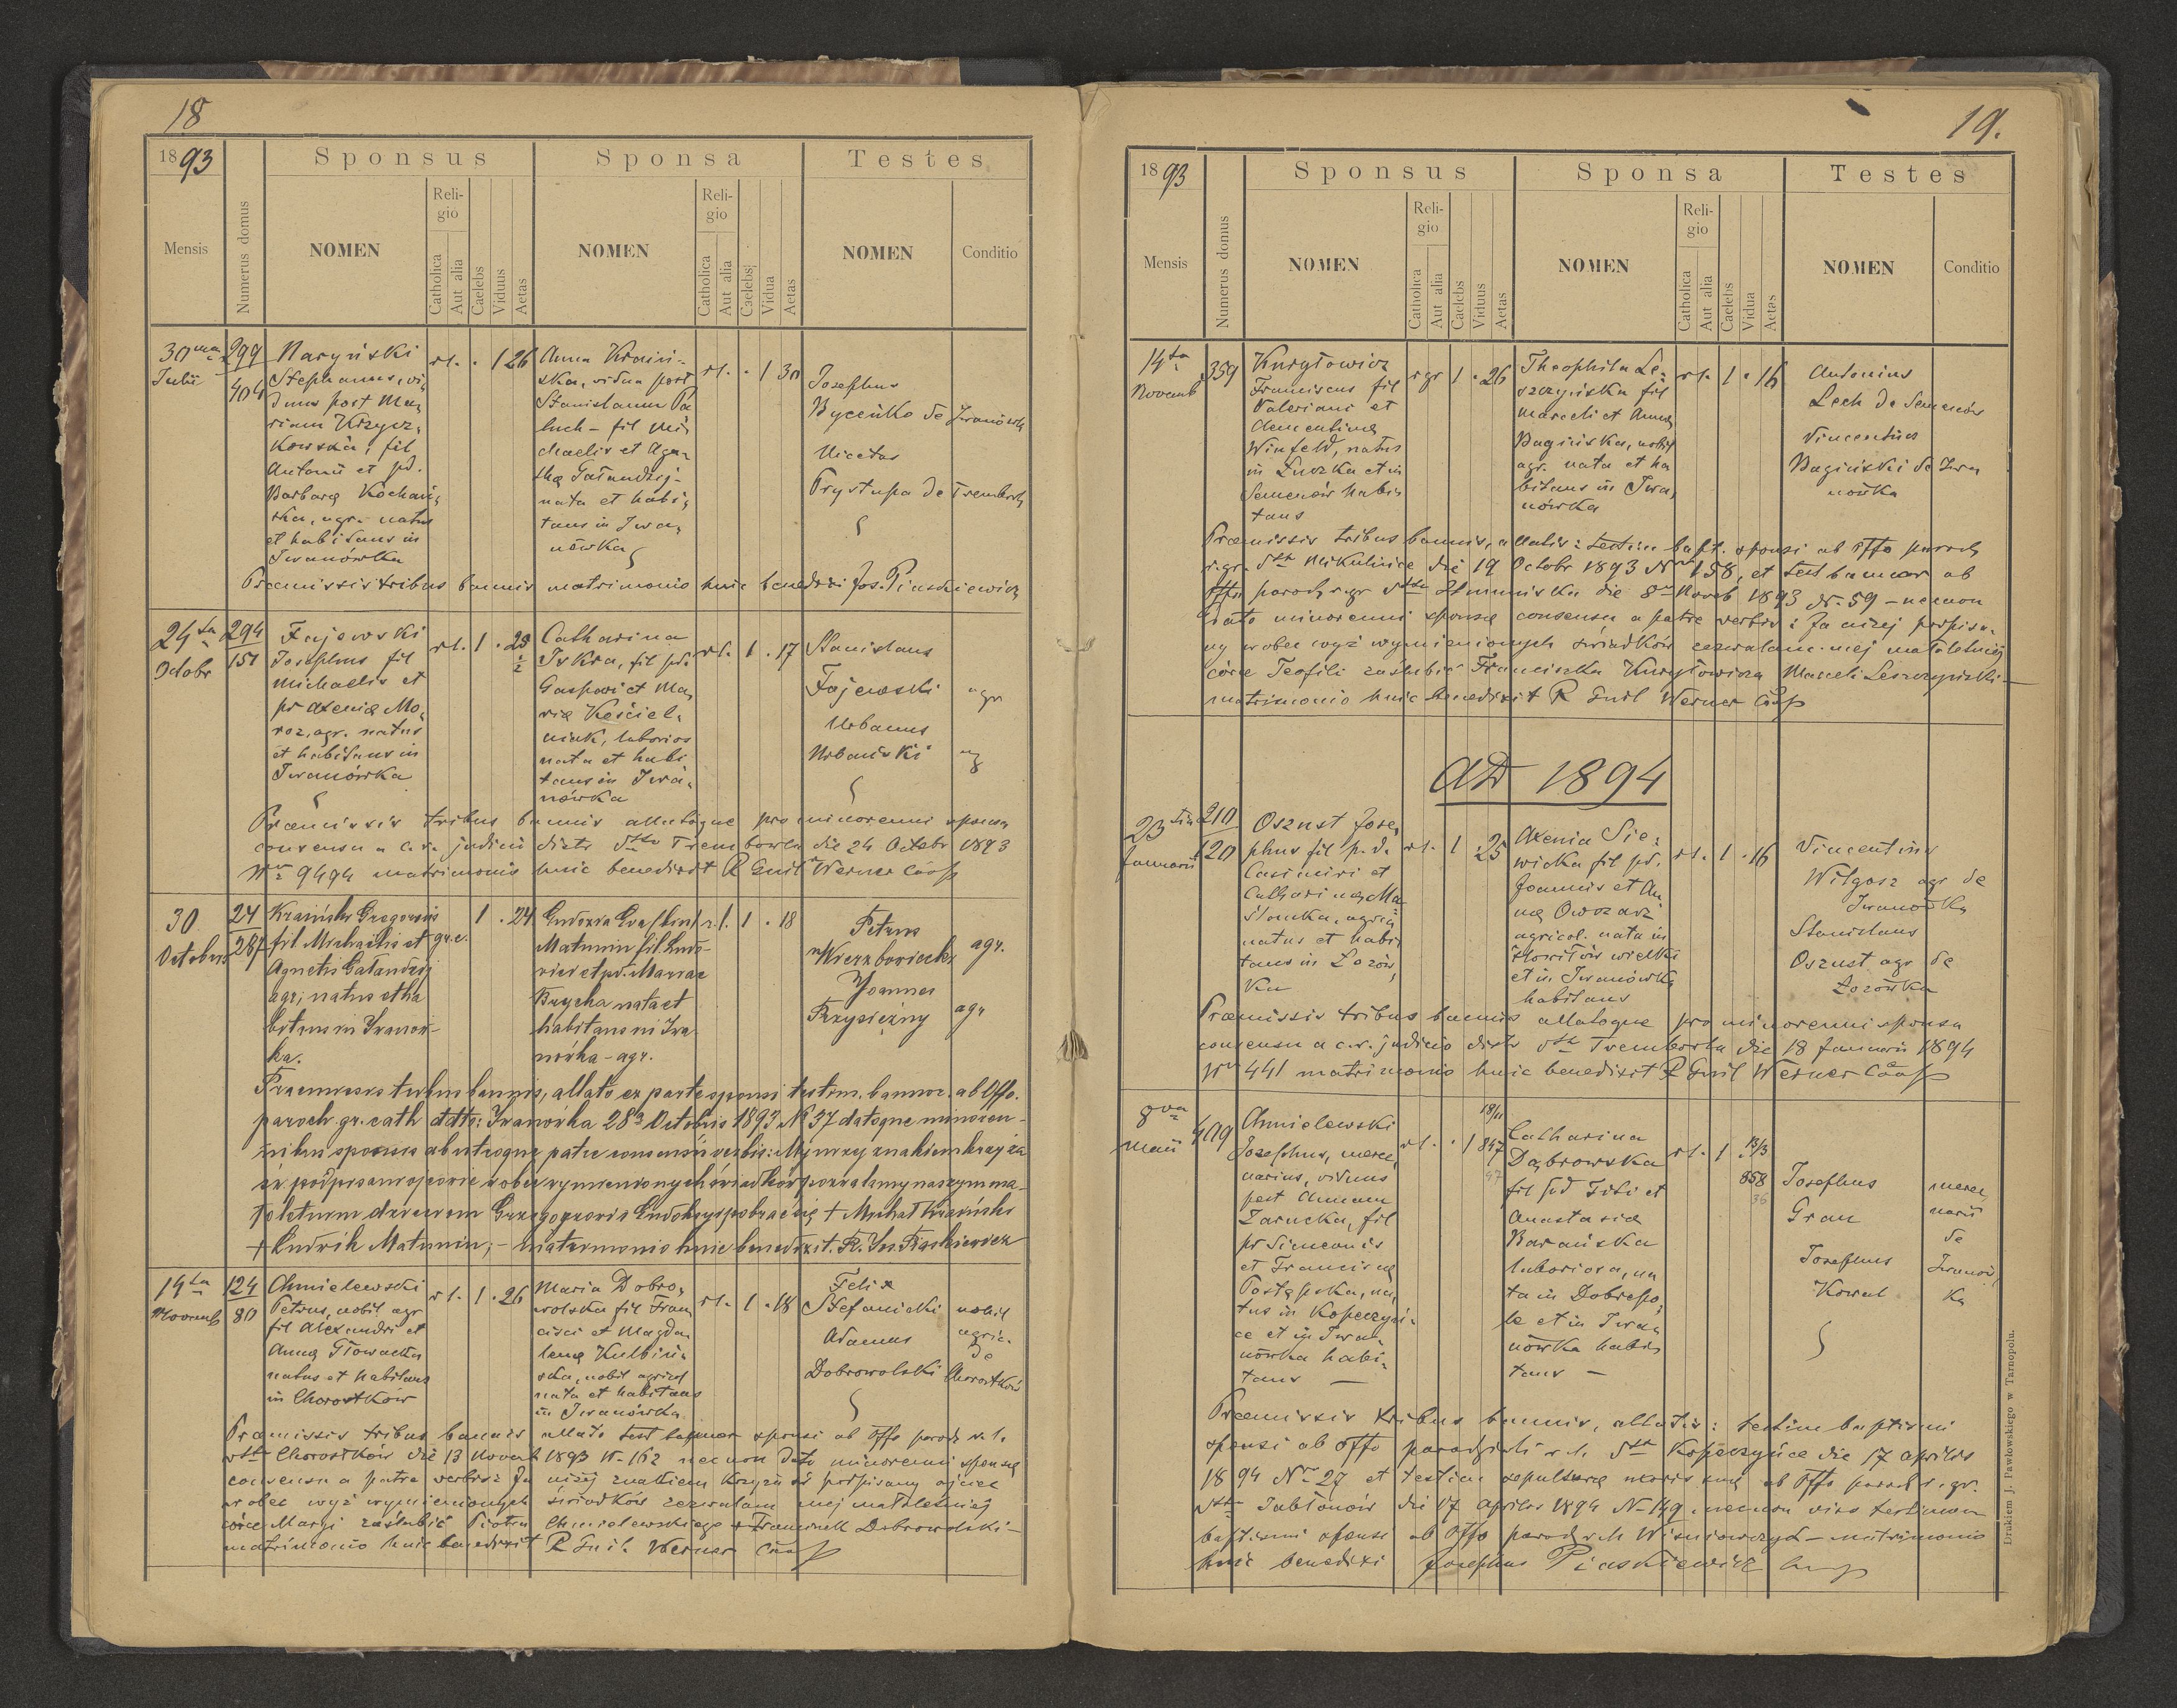 18
1893
Sponsus
Sponsa
Testes
Mensis
Numerus domus
NOMEN
Reli-
gio
Catholica
Aut alia
Caelebs
Viduus
Aetas
NOMEN
Reli-
gio
Catholica
Aut alia
Caelebs
Vidua
Aetas
NOMEN
Conditio
30ma
Julii
299
404
Naryński
Stephanus, vi,
duus post Ma,
riam Krzycz,
kowska, fil
Antonii et pd.
Barbarę Kochań,
ska, agr. natus
et habitans in
Iwanówka
rl. . 1 26
Anna Kraiń-
ska, vidua post
Stanislaum Pa
luch - fil Mi,
chaelis et Aga-
thę Gałandzij-
nata et habi,
tans in Iwa,
nówka
rl. . 1 30
Josephus
Byceńko de Iwanówka
Nicetas
Prystupa de Trembowla
Praemissis tribus bannis matrimonio huic benedixi Jos. Piaskiewicz
24ta
Octobr
294
151
Fajewski
Josephus fil
Michaelis et
pd Axenię Mo,
roz, agr. natus
et habitans in
Iwanówka
rl. 1 . 28
Catharina
Iskra, fil pd.
Gaspari et Ma,
rię Kościel,
niak, laborios
nata et habi
tans in Iwa,
nówka
rl. 1 . 17
Stanislaus
Fajewski agr
Urbanus
Urbański ag
Praemissis tribus bannis allatoque pro minorenni sponsa
consensu a c.r. judicii distr dtto Trembowla die 24 Octobr 1893
Nr 9494 matrimonio huic benedixit R Emil Werner Coop
30
Octobris
24
287
Kraiński Gregorius
fil Michaelis et
Agnetis Gałandzij
agr; natus et ha
bitans in Iwanow-
ka.
gr.c. 1 . 24
Matunin fil Ludo-
vici et pd. Mariae
Brycha nata et
habitans in Iwa
nówka - agr.
r.l. 1 . 18
Petrus
Wierzbowiecki agr.
Joannes
Przysiężny agr
Praemissis tribus bannis, allato ex parte sponsi testim. bannor. ab Offo.
paroch. gr. cath ddtto: Iwanówka 28a Octobris 1893 N 37 datoque minoren-
nibus sponsis ab utroque patre consensu verbis: My niżej znakiem krzyża
św podpisani ojcowie wobec wymienionych świadków pozwalamy naszym ma-
łoletnim dzieciom Grzegorzowi i Eudoksyi pobrać się + Michał Kraiński
+ Ludwik Matunin; - matrimonio huic benedixit. R. Jos. Piaskiewicz
14ta
Novemb
124
80
Chmielewski
Petrus, nobil agr
fil Alexandri et
Annę Głowacka
natus et habitans
in Chorostków
rl. 1 . 26
Maria Dobro,
wolska fil Fran
cisci et Magda
lenę Kulbiń,
ska, nobil agricol
nata et habitans
in Iwanówka
rl. 1 . 18
Felix
Stefanicki nobil
Adamus agric.
de
Dobrowolski Chorostków
Praemissis tribus bannis allato test bannor sponsi ab Offo paroch r. l.
dtto Chorostków die 13 Novemb 1893 N-162 necnon dato minorenni sponsę
consensu a patre verbis: Ja niżej znakiem krzyża św podpisany ojciec
wobec wyż wymienionych świadków zezwalam mej małoletniej
córce Maryi zaślubić Piotra Chmielewskiego + Franciszek Dobrowolski -
matrimonio huic benedixit R Emil Werner Coop
19.
1893
Sponsus
Sponsa
Testes
Mensis
Numerus domus
NOMEN
Reli-
gio
Catholica
Aut alia
Caelebs
Viduus
Aetas
NOMEN
Reli-
gio
Catholica
Aut alia
Caelebs
Vidua
Aetas
NOMEN
Conditio
14ta
Novemb
359
Kuryłowicz
Franciscus fil
Valeriani et
Clementinę
Winfeld, natus
in Łuczka et in
Semenów habi
tans
r gr 1 . 26
Theophila Le,
szczyńska fil
Marceli et Annę
Bagińska, nobil
agr. nata et ha
bitans in Iwa,
nówka
rl. 1 . 16
Antonius
Lech de Semenów
Vincentius
Bagiński de Iwa
nówka
Praemissis tribus bannis, allatis: testim bapt. sponsi ab Offo paroch
r.gr. dtto Mikulińce die 19 Octobr 1893 Nr 158, et test bannor ab
Offo paroch r.gr dtto die 8 Novemb 1893 N. 59 - necnon
dato minorenni sponsę consensu a patre verbis: Ja niżej podpisa,
ny wobec wyż wymienionych świadków zezwalam mej małoletniej
córce Teofili zaślubić Franciszka Kuryłowicza Marceli Leszczyński -
matrimonio huic benedixit R Emil Werner Coop
AD 1894
23tia
Januarii
210
120
Oszust Jose,
phus fil p.d.
Casimiri et
Catharinę Ma
słonka, agric
natus et habi
tans in Łozów,
ka
rl. 1 . 25
Axenia Sie,
wicka fil pd.
Joannis et An
nę Owczarz
agricol. nata in
Howiłów wielki
et in Iwanówka
habitans
rl. 1 . 16
Vincentius
Wilgosz agr de
Iwanówka
Stanislaus
Oszust agr de
Łozówka
Praemissis tribus bannis allatoque pro minorenni sponsa
consensu a c.r. judicio distr dtto Trembowla die 18 Januarii 1894
Nr 441 matrimonio huic benedixit R Emil Werner Coop
8va
Maii
409
Chmielewski
Josephus, merce,
narius, viduus
post Annam
Zarucka, fil
pd Simeonis
et Franciscę
Postępska, na,
tus in Kopeczyń,
ce et in Iwa,
nówka habi,
tans —
rl. . 1
18/11
847
47
Catharina
Dąbrowska
fil pd Titi et
Anastasię
Barańska
laboriosa, na
ta in Dobropo,
le et in Iwa,
nówka habi,
tans —
rl. 1 .
13/3
858
36
Josephus
Gran
Josephus
Kowal
merce,
narii
de
Iwanów,
ka
Praemissis tribus bannis, allatis: testim baptismi
sponsi ab Offo parochiali r.l. dtto Kopeczyńce die 17 Aprilis
1894 Nr 27 et testim sepulturę uxoris suę ab Offo paroch r. gr.
dtto Jabłonów die 17 Aprilis 1894 N-149 necnon vico testimon
baptismi sponsę ab Offo paroch r.l. Wiśniowczyk - matrimonio
huic benedixi Josephus Piaskiewicz
Drukiem J. Pawłowskiego w Tarnopolu.